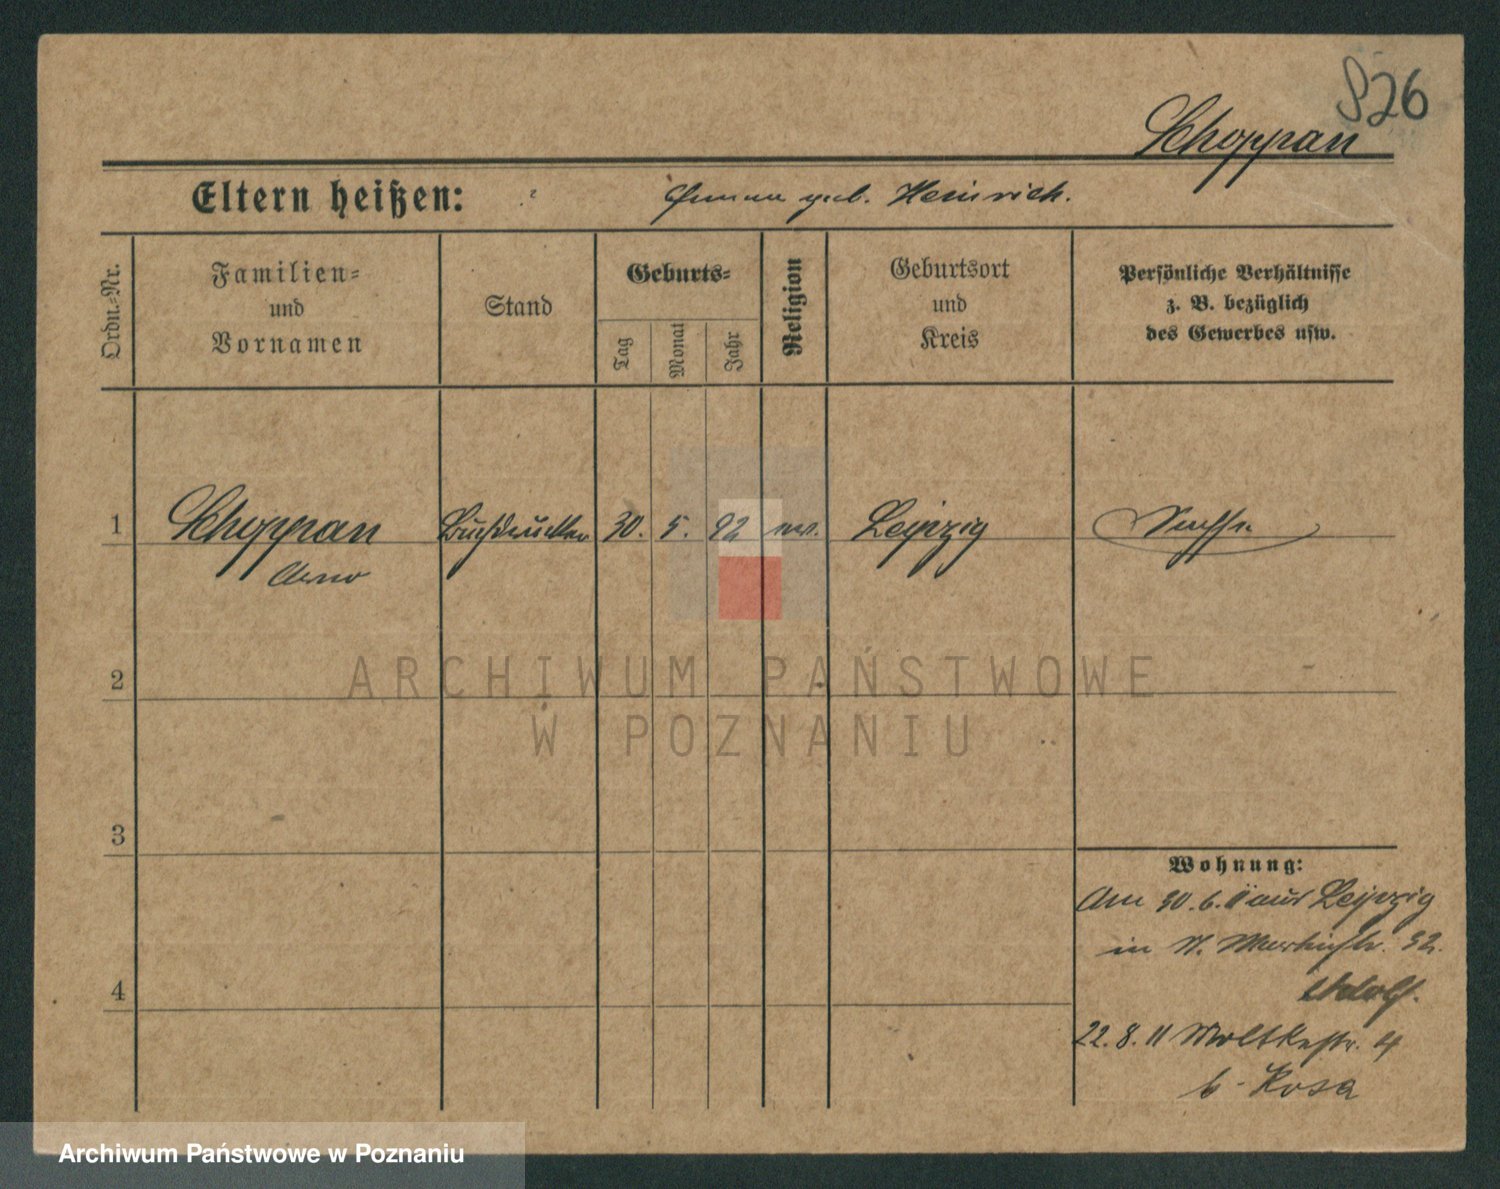 826
Schoppan
Eltern heißen: ? Emma geb. Heinrich.
Ordn.-Nr.
Familien-
und
Vornamen
Stand
Geburts-
Tag
Monat
Jahr
Religion
Geburtsort
und
Kreis
Persönliche Verhältnisse
z. B. bezüglich
des Gewerbes usw.
1 Schoppan Buchdrucker 30. 5. 92 ev. Leipzig Sachse
Arno
2
ARCHIWUM PAŃSTWOWE
W POZNANIU
3
Wohnung:
Am 30. 6. 11 aus Leipzig
in St. Martinstr. 32.
4
22. 8. 11 Moltkestr. 4
b. Kosa
Archiwum Państwowe w Poznaniu